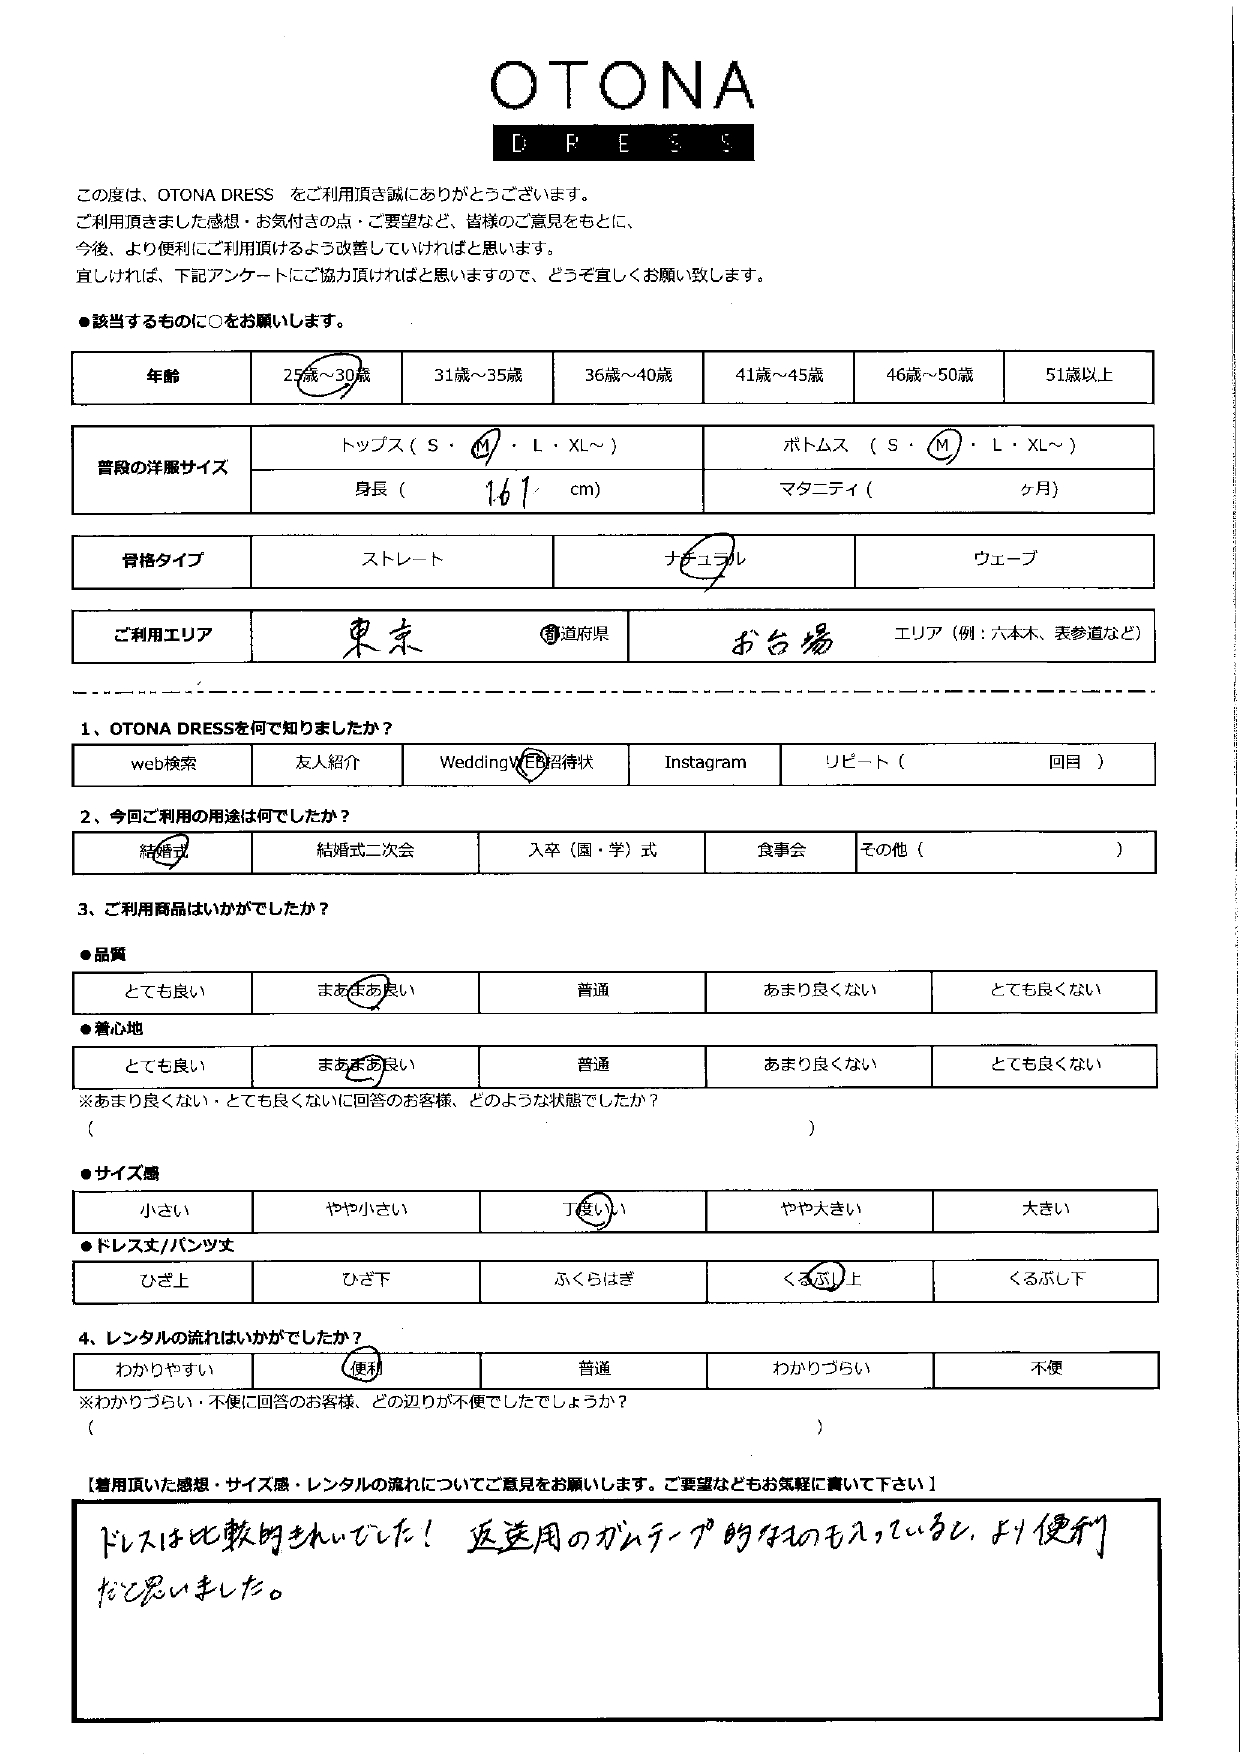 OTONA
DRESS
この度は、OTONA DRESS　をご利用頂き誠にありがとうございます。
ご利用頂きました感想・お気付きの点・ご要望など、皆様のご意見をもとに、
今後、より便利にご利用頂けるよう改善していければと思います。
宜しければ、下記アンケートにご協力頂ければと思いますので、どうぞ宜しくお願い致します。
●該当するものに○をお願いします。
年齢 25歳～30歳 31歳～35歳 36歳～40歳 41歳～45歳 46歳～50歳 51歳以上
普段の洋服サイズ トップス ( S ・ M ・ L ・ XL～ ) ボトムス ( S ・ M ・ L ・ XL～ )
身長 ( 161 cm) マタニティ ( ヶ月)
骨格タイプ ストレート ナチュラル ウェーブ
ご利用エリア 東京 都道府県 お台場 エリア（例：六本木、表参道など）
1、OTONA DRESSを何で知りましたか？
web検索 友人紹介 WeddingWEB招待状 Instagram リピート（ 回目 ）
2、今回ご利用の用途は何でしたか？
結婚式 結婚式二次会 入卒（園・学）式 食事会 その他（ ）
3、ご利用商品はいかがでしたか？
●品質
とても良い まあまあ良い 普通 あまり良くない とても良くない
●着心地
とても良い まあまあ良い 普通 あまり良くない とても良くない
※あまり良くない・とても良くないに回答のお客様、どのような状態でしたか？
( )
●サイズ感
小さい やや小さい 丁度いい やや大きい 大きい
●ドレス丈/パンツ丈
ひざ上 ひざ下 ふくらはぎ くるぶし上 くるぶし下
4、レンタルの流れはいかがでしたか？
わかりやすい 便利 普通 わかりづらい 不便
※わかりづらい・不便に回答のお客様、どの辺りが不便でしたでしょうか？
( )
【着用頂いた感想・サイズ感・レンタルの流れについてご意見をお願いします。ご要望などもお気軽に書いて下さい】
ドレスは比較的きれいでした！ 返送用のガムテープ的なものも入っていると、より便利
だと思いました。